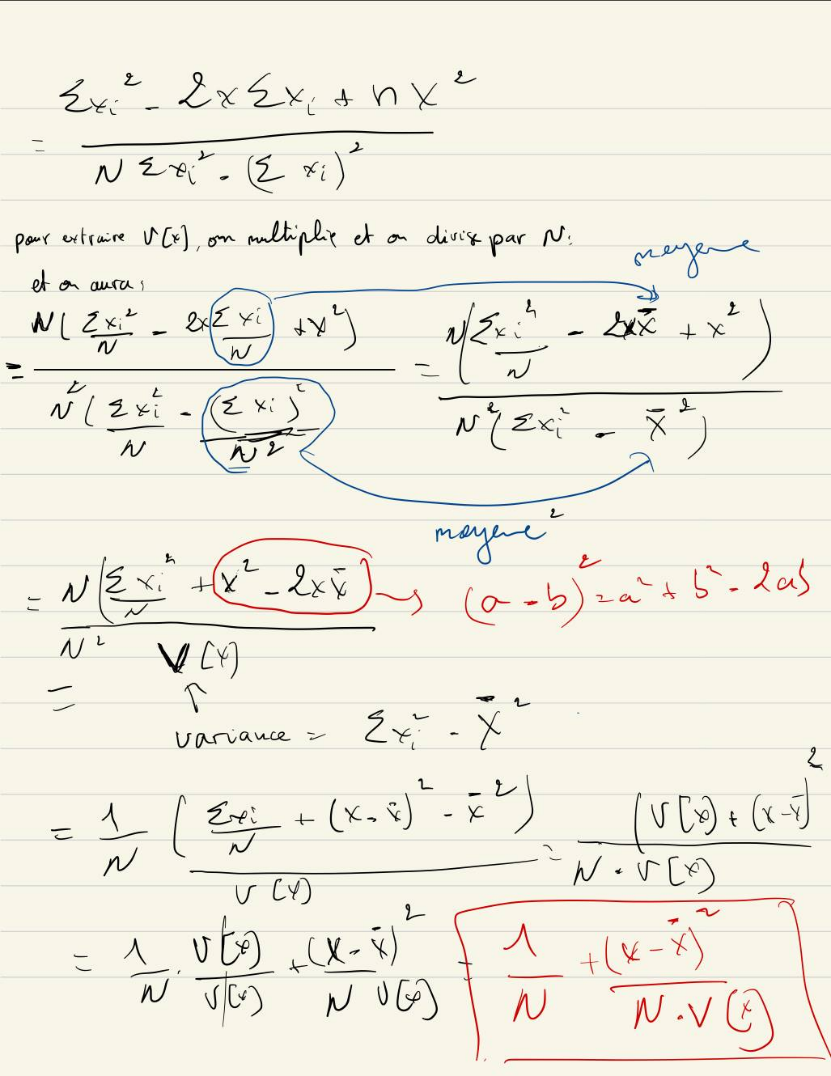 = (Σxi² - 2x Σxi + n x²) / (N Σxi² - (Σ xi)²)
pour extraire V[x], on multiplie et on divise par N:
moyenne
et on aura:
= N( Σxi²/N - 2x Σxi/N + x²) / N²( Σxi²/N - (Σ xi)²/N²) = N( Σxi²/N - 2x x̄ + x²) / N²( Σxi² - x̄²)
moyenne²
= N( Σxi²/N + x² - 2x x̄ / N² V[x] → (a - b)² = a² + b² - 2ab
= ↑
variance = Σxi² - x̄²
= 1/N ( Σxi/N + (x - x̄)² - x̄²) / V[x] = (V[x] + (x - x̄)² / N · V[x]
= 1/N · V[x]/V[x] + (x - x̄)² / N V[x] = 1/N + (x - x̄)² / N · V[x]